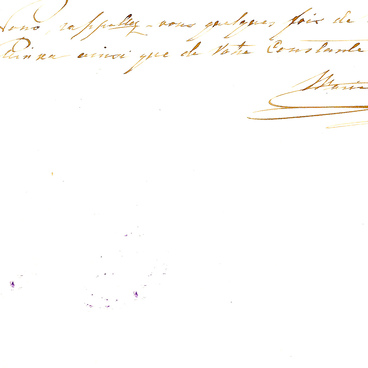 vous rappellez-vous quelques fois de
ainsi que de Votre Constante